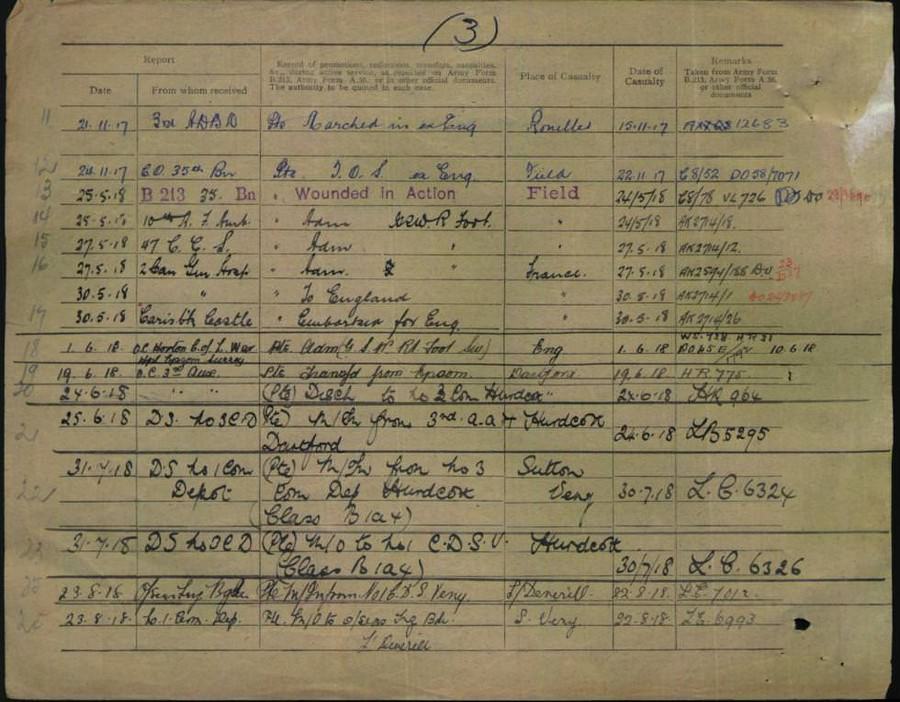 (3)
Report
Record of promotions, reductions, transfers, casualties, &c., during active service, as reported on Army Form B.213, Army Form A.36, or in other official documents. The authority to be quoted in each case.
Place of Casualty
Date of Casualty
Remarks
Taken from Army Form B.213, Army Form A.36, or other official documents
Date From whom received
11 21.11.17 3rd ADBD Pte Marched in ex Eng Rouelles 15.11.17 12683
12 24.11.17 C.O. 35th Bn Pte T.O.S. ex Eng. Field 22.11.17 C8/52 DO58/7071
13 25.5.18 B 213 35. Bn " Wounded in Action Field 24/5/18 C8/78 VL726 DO
14 25.5.18 10th A. F. Amb. " Adm GSW. R Foot. " 24/5/18 AK2714/18.
15 27.5.18 47 C. C. S. " Adm " " 27.5.18 AK2714/12.
16 27.5.18 2 Can Gen Hosp " Adm. " France. 27.5.18
30.5.18 " " To England " 30.5.18 AK2714/1
17 30.5.18 Carisbk Castle " Embarked for Eng. " 30.5.18 AK2714/26
18 1.6.18 O.C. Horton C. of L. War Hpl Epsom Surrey Pte Adm (G S W Rt Foot Sev) Eng 1.6.18 10.6.18
19 19.6.18. O.C. 3rd Aux. Pte Transfd from Epsom. Dartford 19.6.18 HR775
20 24.6.18 " " (Pte) Disch to No 3 Com Hurdcott " 24.6.18 HR 964
25.6.18 DS. No 3 CD (Pte) M/In from 3rd. A.A.H Hurdcott
Dartford 24.6.18 LB5295
31.7.18 D.S No 1 Com (Pte) M/In from No 3 Sutton
22 Depot. Com Dep Hurdcott Veny 30.7.18 L.C.6324
(Class B1a4)
23 31.7.18 DS No 3 CD (Pte) M/O to No 1 C.D.S.V. Hurdcott
Class B1a4) 30/7/18 L.C.6326
23.8.18 Pte M/In from No 1 C.D. S. Veny. L/Deverill. 22.8.18.
23.8.18. No.1.Com. Dep. Pte. M/O to O/Seas Trg Bde. S. Veny 22.8.18 LE.6993
L' Deverill